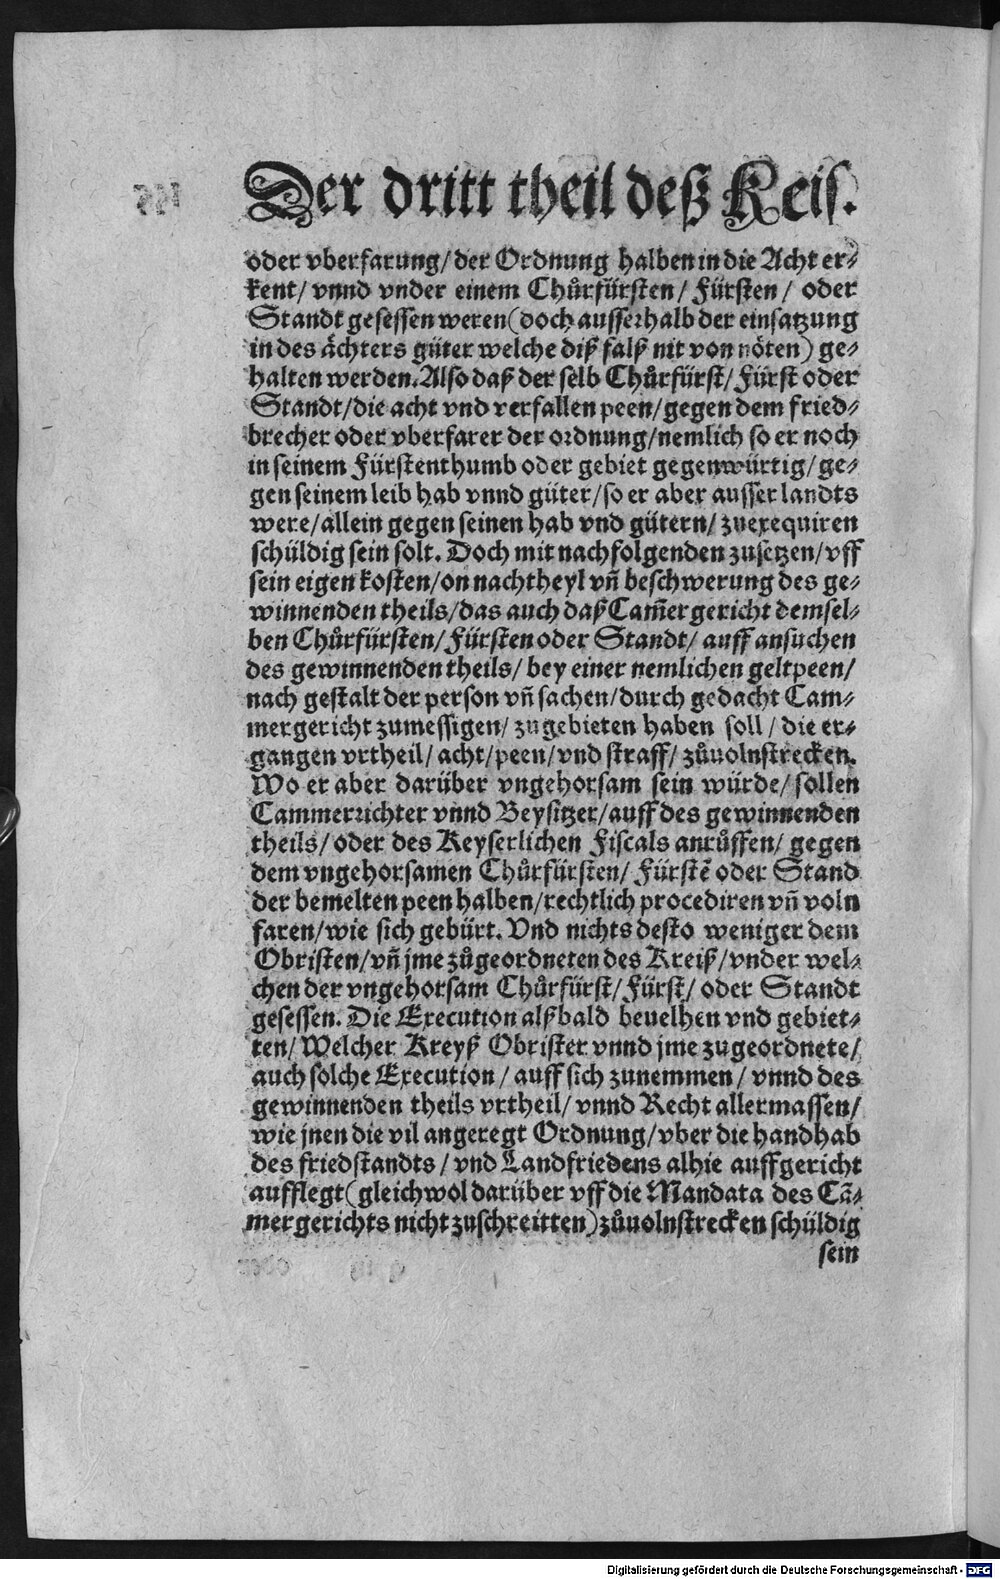 Der dritt theil deß Keis.
oder vberfarung/ der Ordnung halben in die Acht er⸗
kent/ vnnd vnder einem Chůrfürsten/ Fürsten/ oder
Standt gesessen weren (doch ausserhalb der einsatzung
in des ächters güter welche diß falß nit von nöten) ge⸗
halten werden. Also daß der selb Chůrfürst/ Fürst oder
Standt/ die acht vnd verfallen peen/ gegen dem fried⸗
brecher oder vberfarer der ordnung/ nemlich so er noch
in seinem Fürstenthumb oder gebiet gegenwürtig/ ge⸗
gen seinem leib hab vnnd güter/ so er aber ausser landts
were/ allein gegen seinen hab vnd gütern/ zuexequiren
schüldig sein solt. Doch mit nachfolgenden zusetzen/ vff
sein eigen kosten/ on nachtheyl vñ beschwerung des ge⸗
winnenden theils/ das auch daß Cam̃er gericht demsel⸗
ben Chůrfürsten/ Fürsten oder Standt/ auff ansuchen
des gewinnenden theils/ bey einer nemlichen geltpeen/
nach gestalt der person vñ sachen/ durch gedacht Cam⸗
mergericht zumessigen/ zugebieten haben soll/ die er⸗
gangen vrtheil/ acht/ peen/ vnd straff/ zůuolnstrecken.
Wo er aber darüber vngehorsam sein würde/ sollen
Cammerrichter vnnd Beysitzer/ auff des gewinnenden
theils/ oder des Keyserlichen Fiscals anrůffen/ gegen
dem vngehorsamen Chůrfürsten/ Fürstẽ oder Stand
der bemelten peen halben/ rechtlich procediren vñ voln
faren/ wie sich gebürt. Vnd nichts desto weniger dem
Obristen/ vñ jme zůgeordneten des Kreiß/ vnder wel⸗
chen der vngehorsam Chůrfürst/ Fürst/ oder Standt
gesessen. Die Execution alßbald beuelhen vnd gebiet⸗
ten/ Welcher Kreyß Obrister vnnd jme zugeordnete/
auch solche Execution/ auff sich zunemmen/ vnnd des
gewinnenden theils vrtheil/ vnnd Recht allermassen/
wie jnen die vil angeregt Ordnung/ vber die handhab
des friedstandts/ vnd Landfriedens alhie auffgericht
aufflegt (gleichwol darüber vff die Mandata des Cã⸗
mergerichts nicht zuschreitten) zůuolnstrecken schüldig
sein
Digitalisierung gefördert durch die Deutsche Forschungsgemeinschaft - DFG